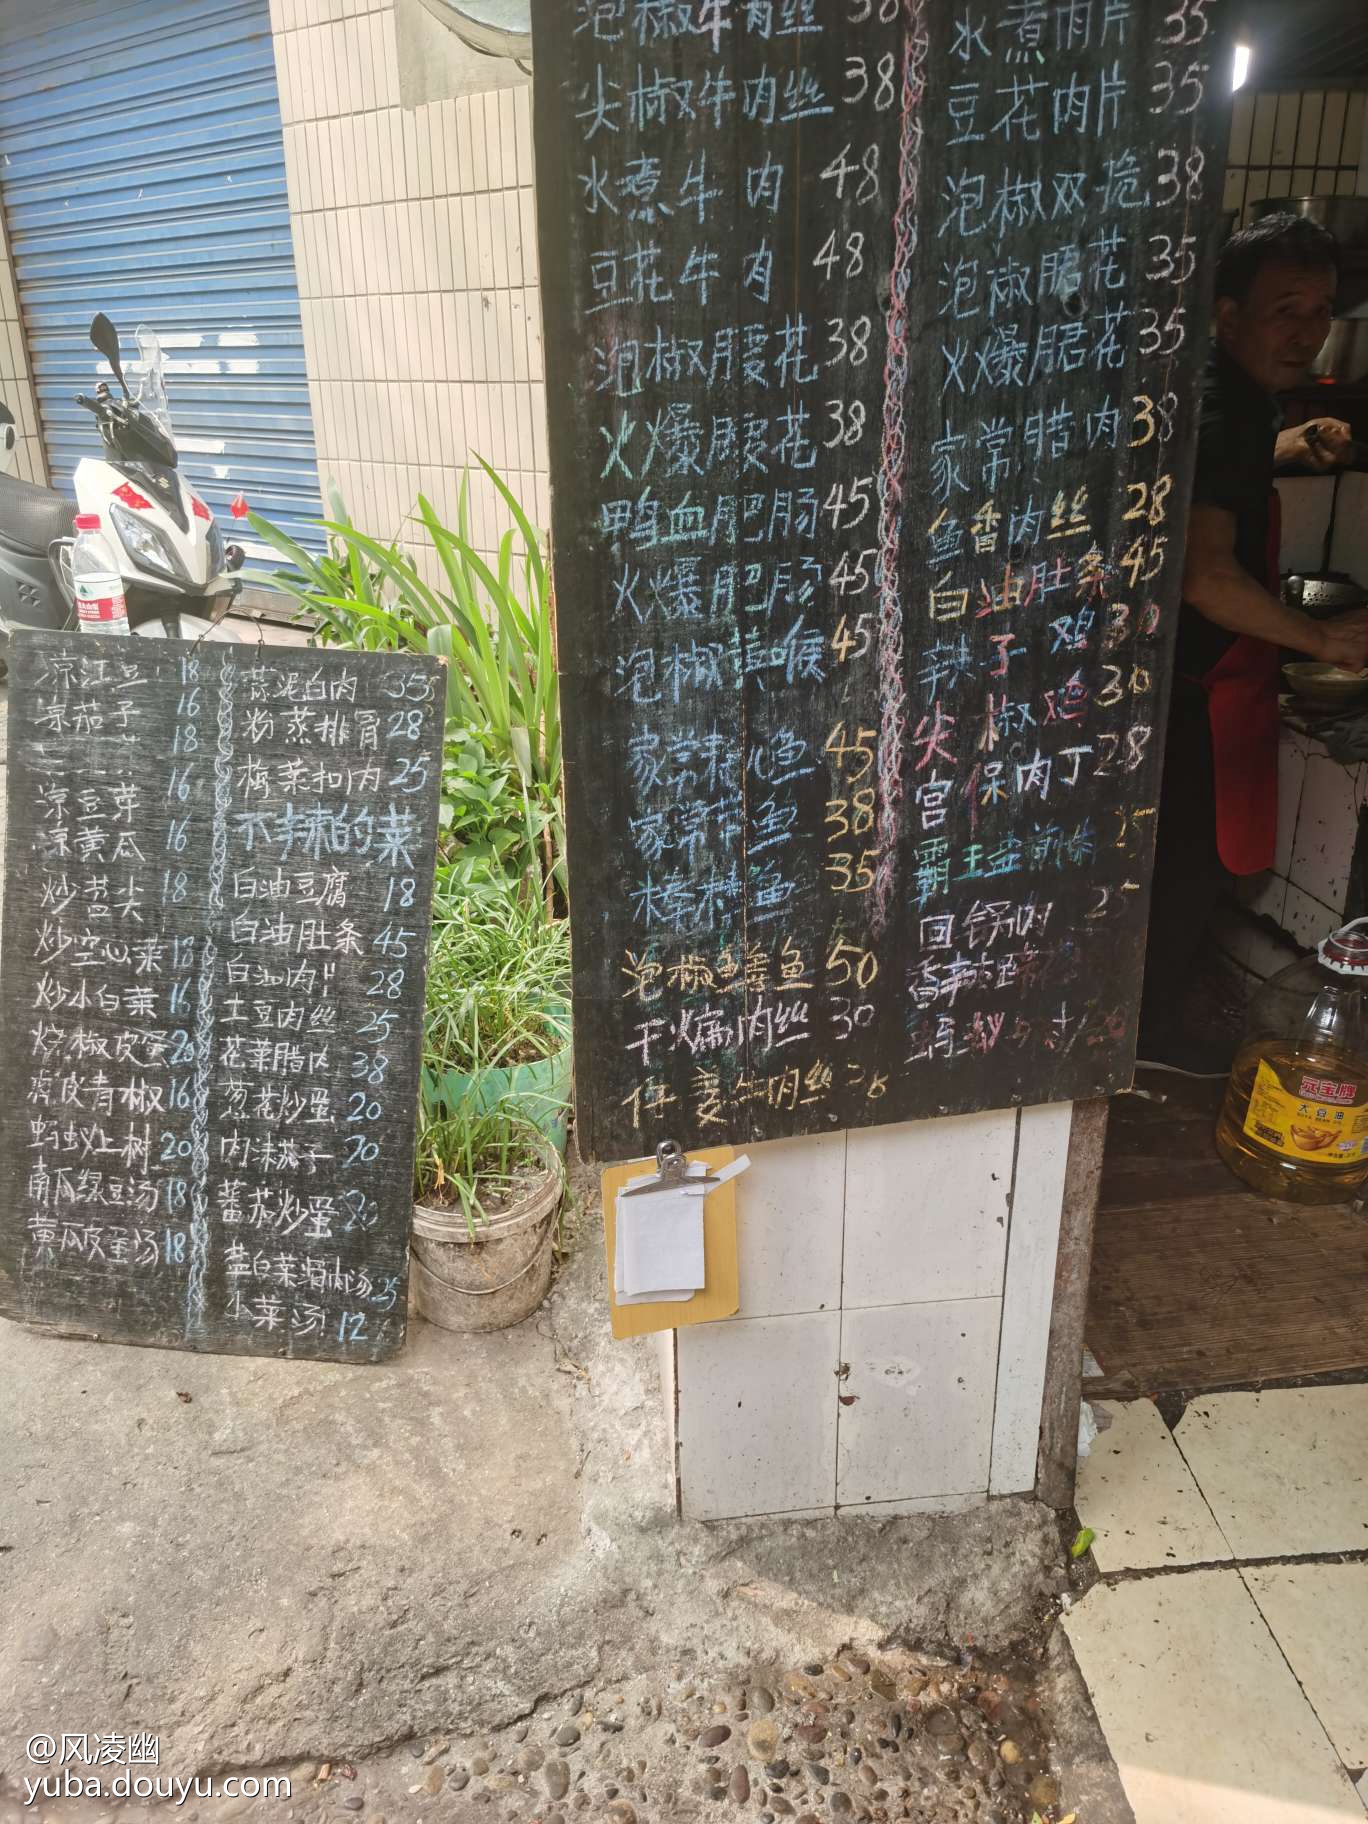 凉江豆 18
凉茄子 16
18
凉豆芽 16
凉黄瓜 16
炒苕尖 18
炒空心菜 18
炒小白菜 16
烧椒皮蛋 20
虎皮青椒 16
蚂蚁上树 20
南瓜绿豆汤 18
黄瓜皮蛋汤 18
蒜泥白肉 35
粉蒸排骨 28
梅菜扣肉 25
不辣的菜
白油豆腐 18
白油肚条 45
白油肉片 28
土豆肉丝 25
花菜腊肉 38
葱花炒蛋 20
肉沫茄子 20
蕃茄炒蛋 20
盐白菜滑肉汤 25
小菜汤 12
泡椒牛肉丝 38
尖椒牛肉丝 38
水煮牛肉 48
豆花牛肉 48
泡椒腰花 38
火爆腰花 38
鸭血肥肠 45
火爆肥肠 45
泡椒黄喉 45
家常桂鱼 45
家常花鱼 38
35
泡椒鳝鱼 50
干煸肉丝 30
仔姜牛肉丝 38
水煮肉片 35
豆花肉片 35
泡椒双脆 38
泡椒䐃花 35
火爆䐃花 35
家常腊肉 38
鱼香肉丝 28
白油肚条 45
辣子鸡 30
尖椒鸡 30
宫保肉丁 28
霸王盐煎 25
回锅肉 25
香辣
蚂蚁上 20
元宝牌
大豆油
@风凌幽
yuba.douyu.com